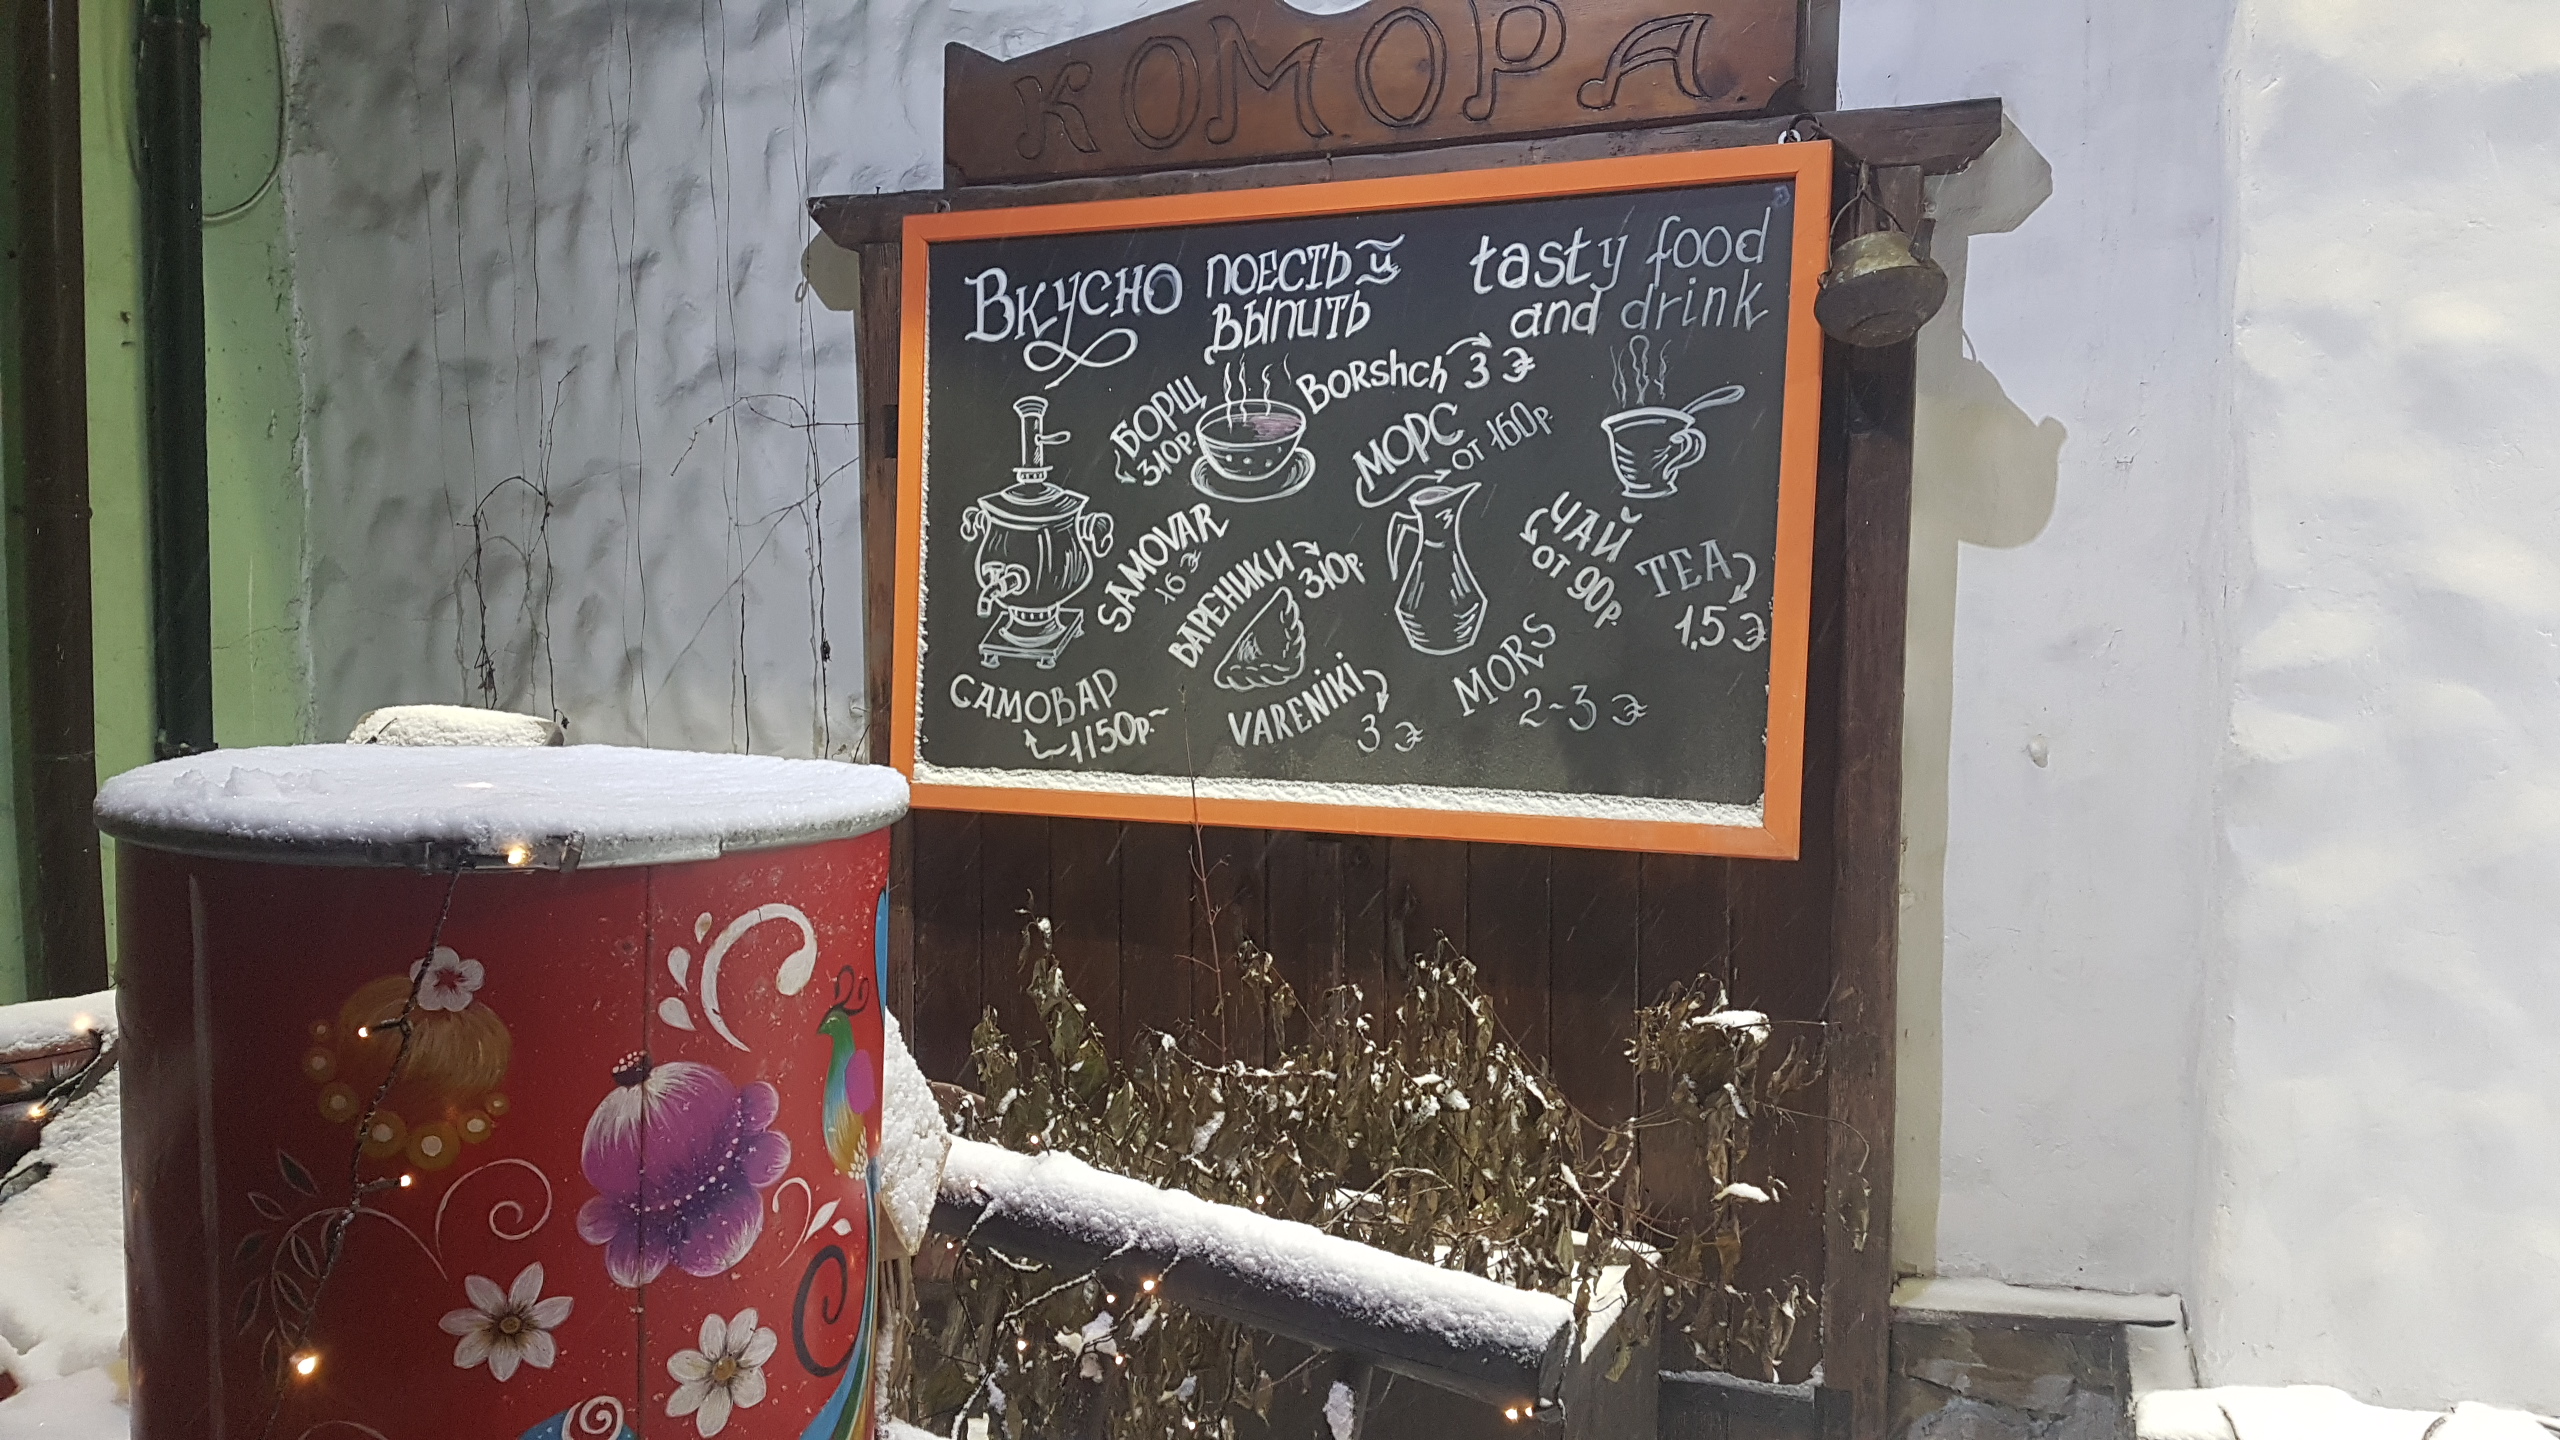 КОМОРА
Вкусно поесть и
выпить
tasty food
and drink
БОРЩ
310р.
Borshch 3 Э
МОРС
от 160р.
SAMOVAR
16 Э
САМОВАР
1150р.
ВАРЕНИКИ
310р.
VARENIKI
3 Э
MORS
2-3 Э
ЧАЙ
от 90р.
TEA
1.5 Э